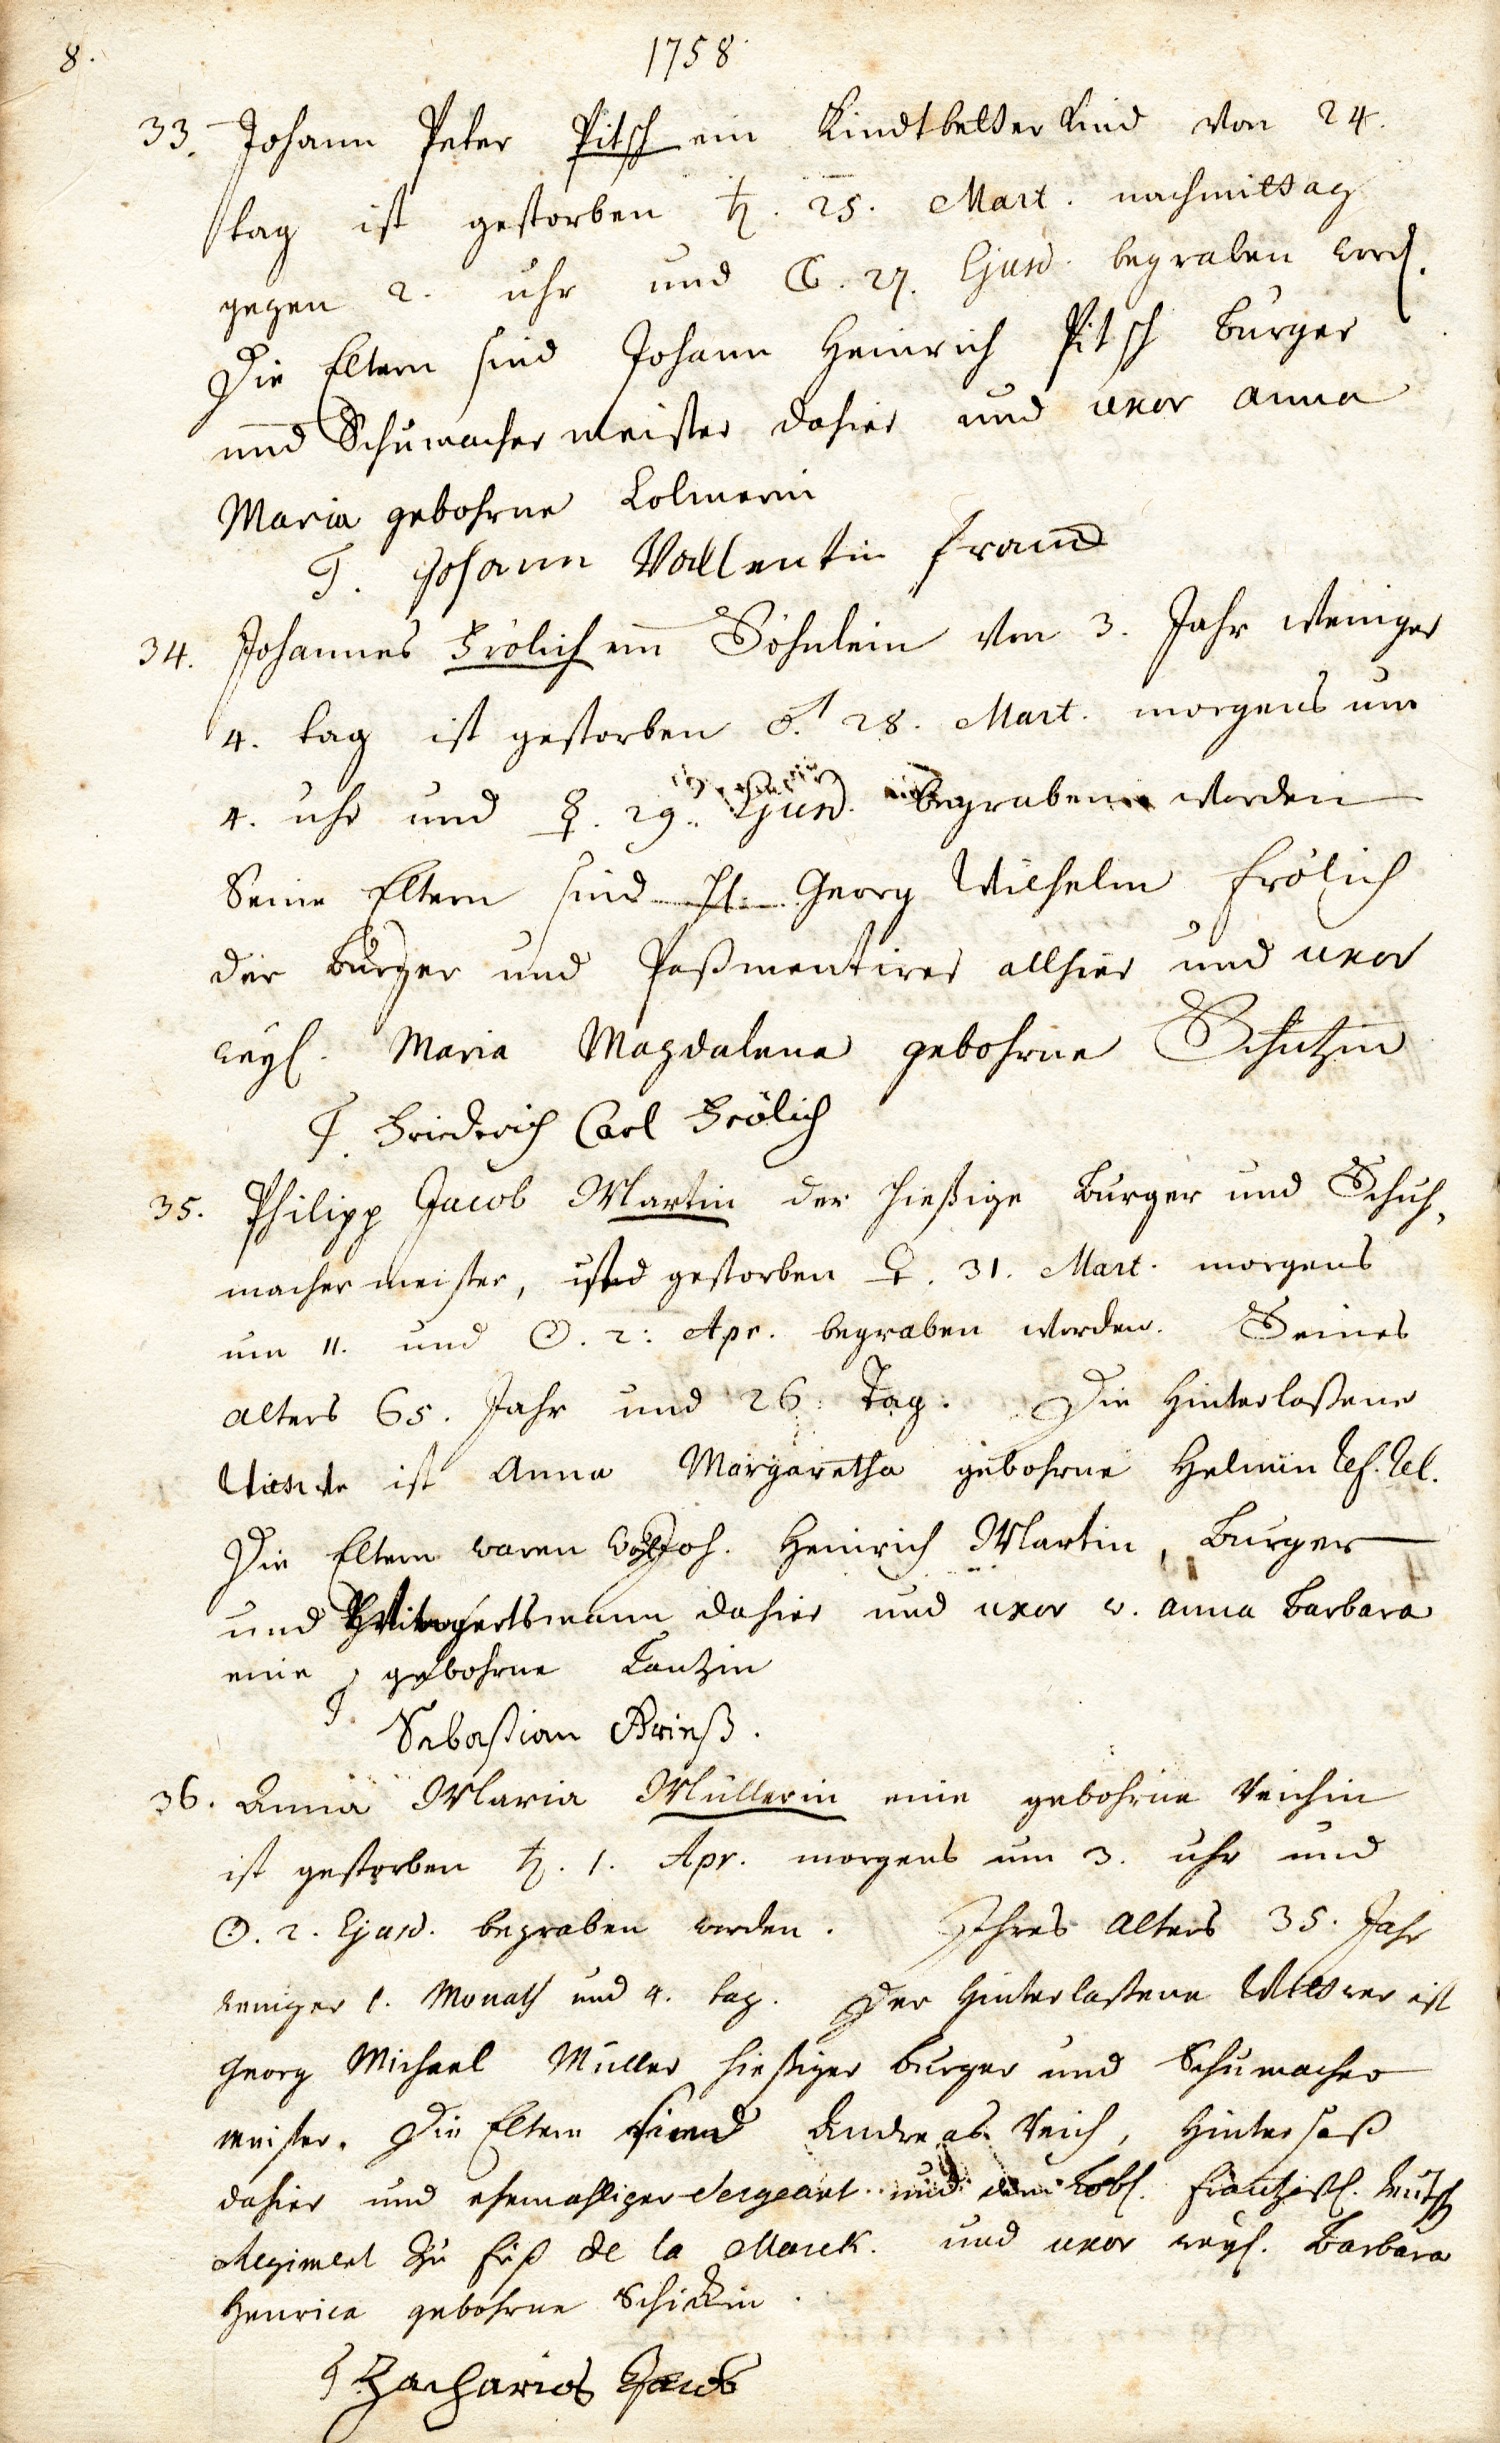 8.
1758.
33. Johann Peter Pitsch ein Kindtbetter Kind von 24.
tag ist gestorben ♄. 25. Mart. nachmittag
gegen 2. uhr und ☾. 27. Ejusd. begraben word.
Die Eltern sind Johann Heinrich Pitsch Burger
und Schumacher meister dahier und uxor anna
Maria gebohrne Colmerin
T. Johann Vallentin
34. Johannes Frölich ein Söhnlein von 3. Jahr weniger
4. tag ist gestorben ♂. 28. Mart. morgens um
4. uhr und ☿. 29. Ejusd. begraben worden
Seine Eltern sind H. Georg Wilhelm Frölich
der Burger und Paßmentirer allhier und uxor
weyl. Maria Magdalena gebohrne Schützin
T. Friederich Carl Frölich
35. Philipp Jacob Martin der hießige Burger und Schuh,
macher meister, ist gestorben ♀. 31. Mart. morgens
um 11. und ☉. 2. Apr. begraben worden. Seines
alters 65. Jahr und 26. Tag. Die Hinterlaßene
ist Anna Margaretha gebohrne Helmin
Die Eltern waren Joh. Heinrich Martin, Burger
und dahier und uxor w. anna Barbara
eine gebohrne Lantzin
T. Sebastian Krieß.
36. Anna Maria Müllerin eine gebohrne Reichin
ist gestorben ♄. 1. Apr. morgens um 3. uhr und
☉. 2. Ejusd. begraben worden. Ihres alters 35. Jahr
weniger 1. Monath und 4. tag. Der Hinterlaßene Wittwer ist
Georg Michael Müller hießiger burger und Schumacher
meister. Die Eltern sind Andreas Reich, Hintersaß
dahier und ehemahliger Sergeant Löbl. Frantzisch. Teutsch
Regiment zu Fuß de la Marck. und uxor weyl. Barbara
Henrica gebohrne Schickin.
T Zacharias